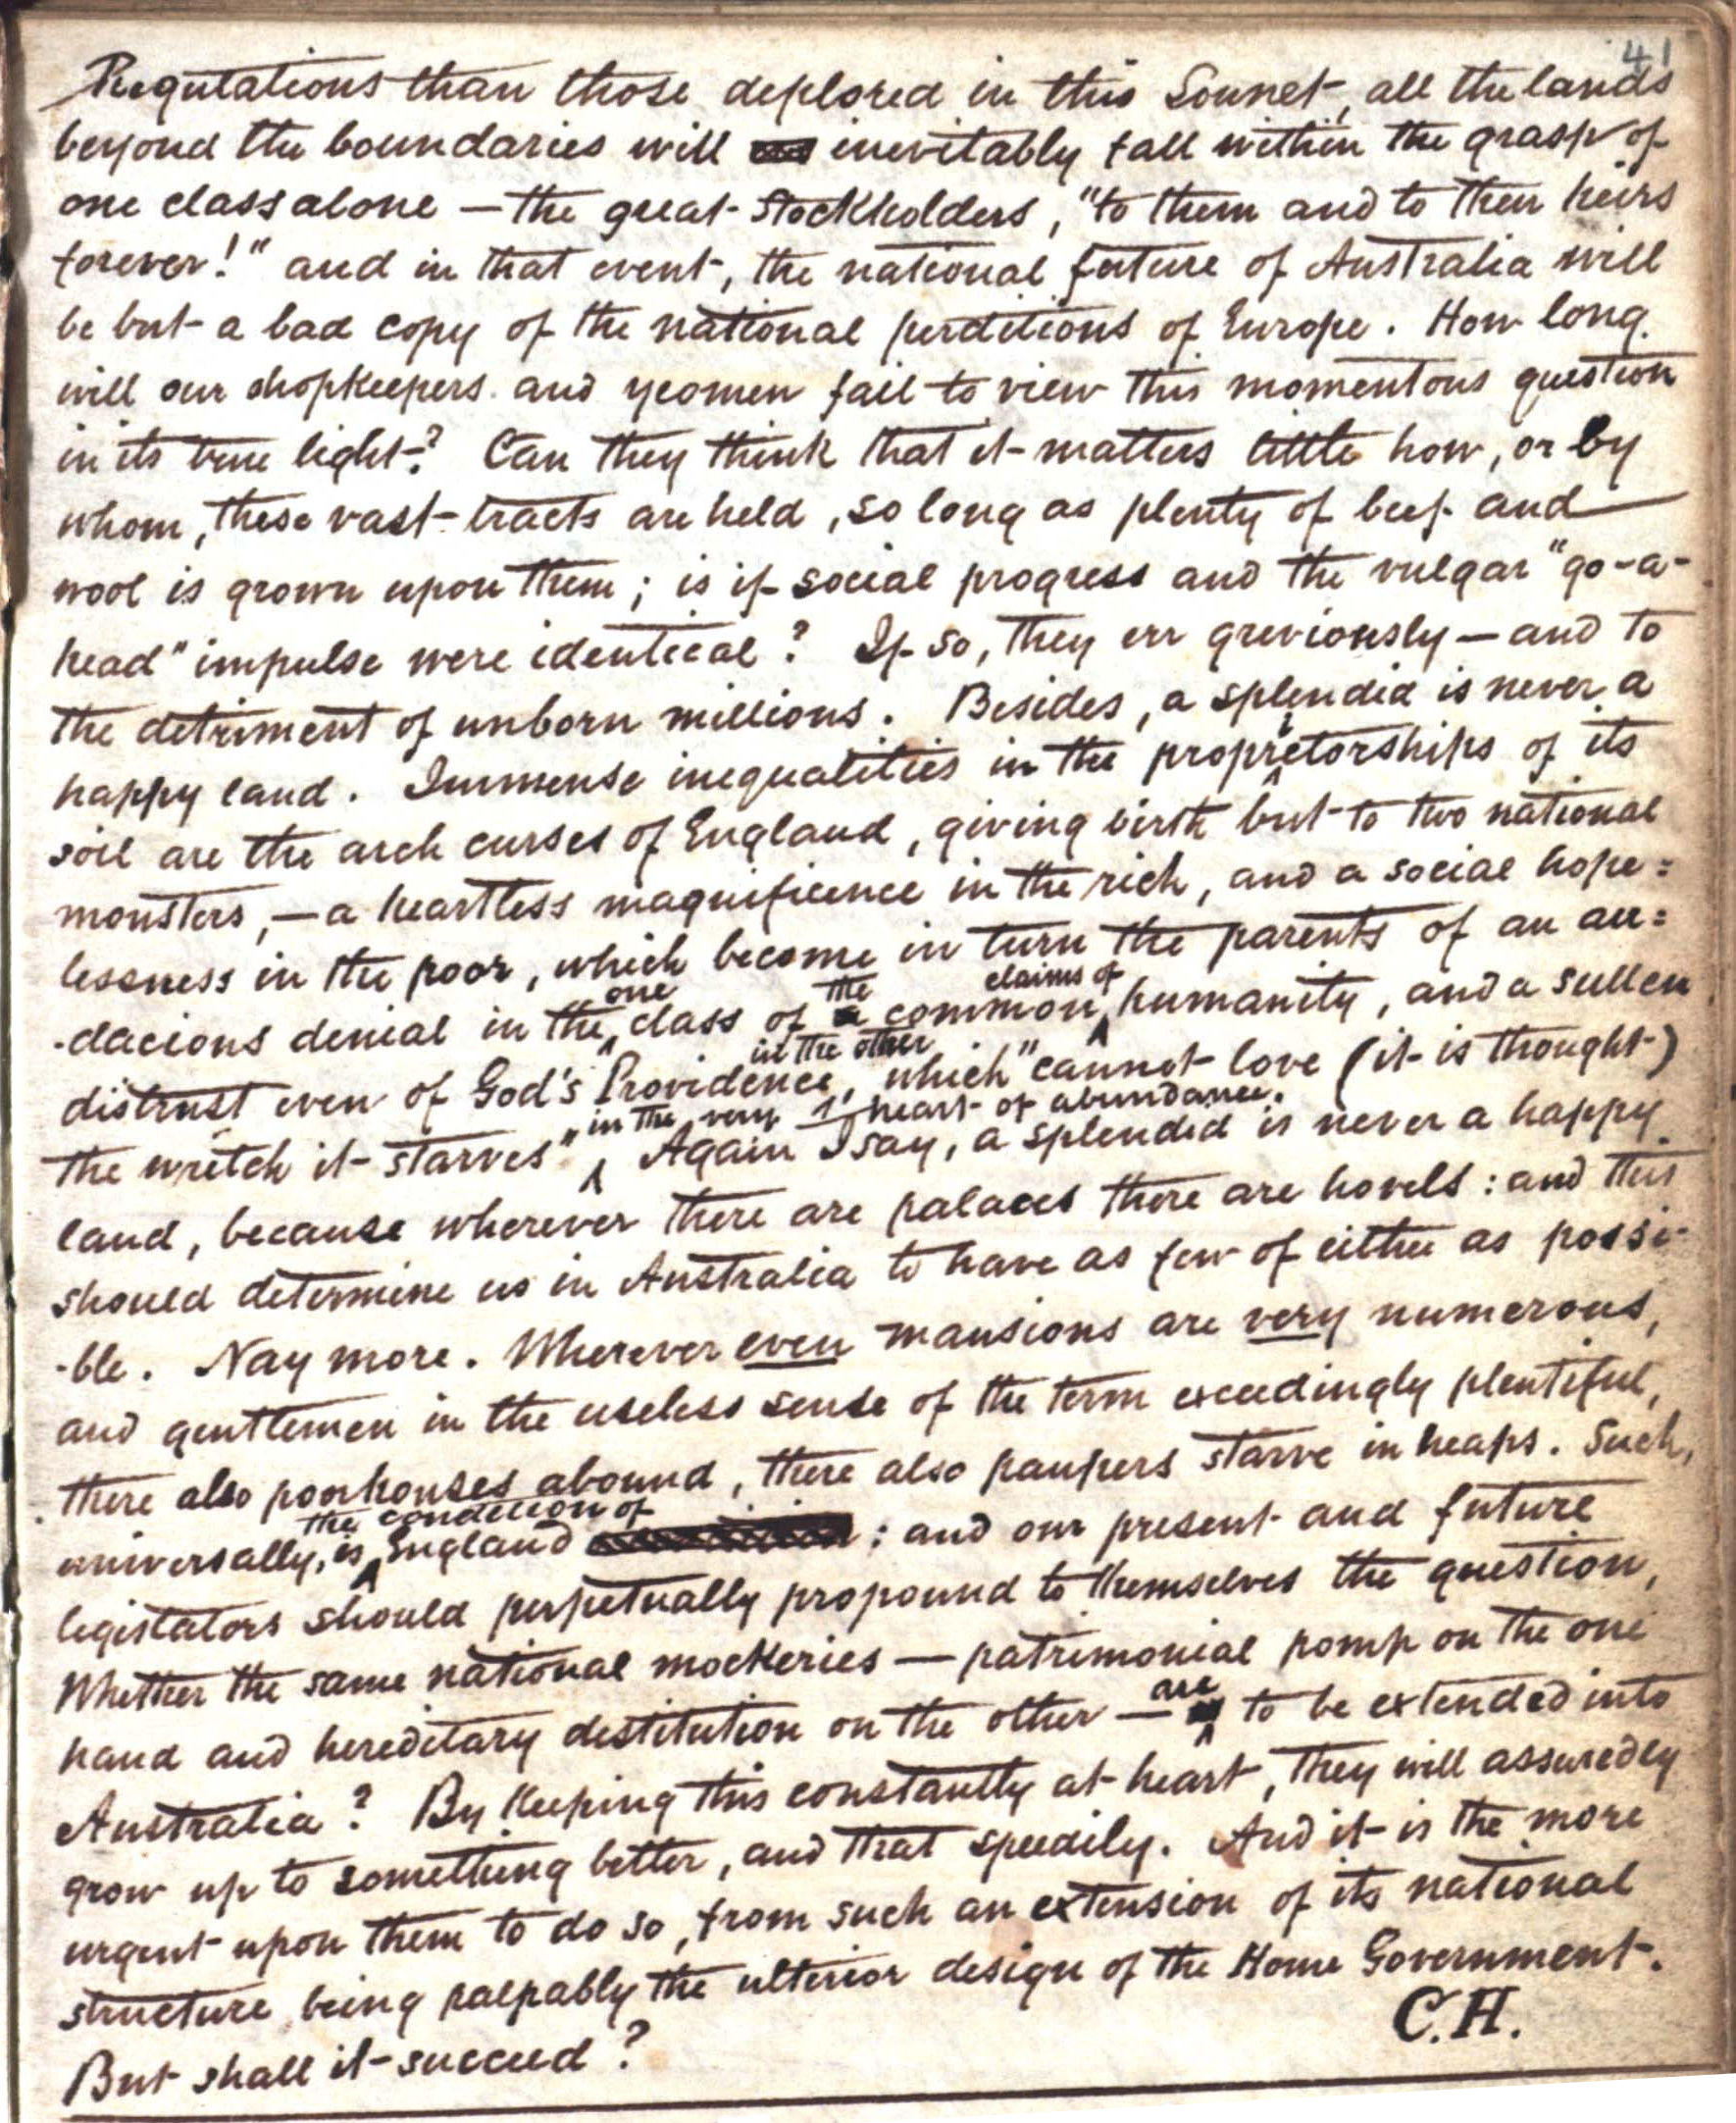 41
Regulations than those deplored in this Sonnet, all the lands
beyond the boundaries will inevitably fall within the grasp of
one class alone — the great Stockholders, "to them and to their heirs
forever!" and in that event, the national future of Australia will
be but a bad copy of the national perditions of Europe. How long
will our shopkeepers and yeomen fail to view this momentous question
in its true light? Can they think that it matters little how, or by
whom, these vast tracts are held, so long as plenty of beef and
wool is grown upon them; is if social progress and the vulgar "go-a-
head" impulse were identical? If so, they err greviously — and to
the detriment of unborn millions. Besides, a splendid is never a
happy land. Immense inequalities in the proprietorships of its
soil are the arch curses of England, giving birth but to two national
monsters, — a heartless magnificence in the rich, and a social hope=
lessness in the poor, which become in turn the parents of an au=
-dacious denial in the one class of the common claims of humanity, and a sullen
distrust even of God's Providence in the other, which "cannot love (it is thought)
the wretch it starves", in the very heart of abundance. Again I say, a splendid is never a happy
land, because wherever there are palaces there are hovels: and this
should determine us in Australia to have as few of either as possi-
-ble. Nay more. Wherever even mansions are very numerous,
and gentlemen in the useless sense of the term exceedingly plentiful,
there also poorhouses abound, there also paupers starve in heaps. Such,
universally, is the condition of England : and our present and future
legislators should perpetually propound to themselves the question,
Whether the same national mockeries — patrimonial pomp on the one
hand and hereditary destitution on the other — are to be extended into
Australia? By keeping this constantly at heart, they will assuredly
grow up to something better, and that speedily. And it is the more
urgent upon them to do so, from such an extension of its national
structure being palpably the ulterior design of the Home Government.
But shall it succeed?
C.H.